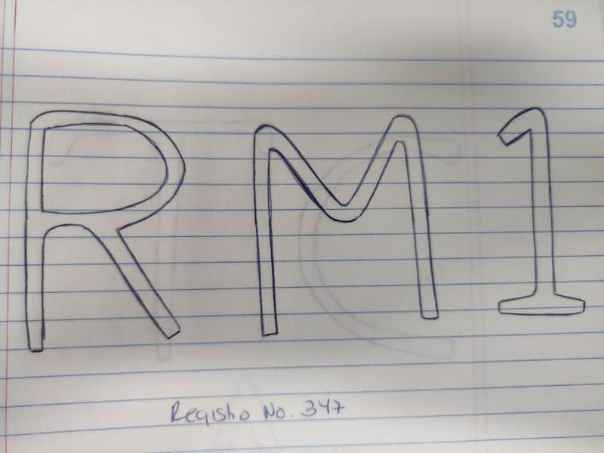 59
RM1
Registro No. 347